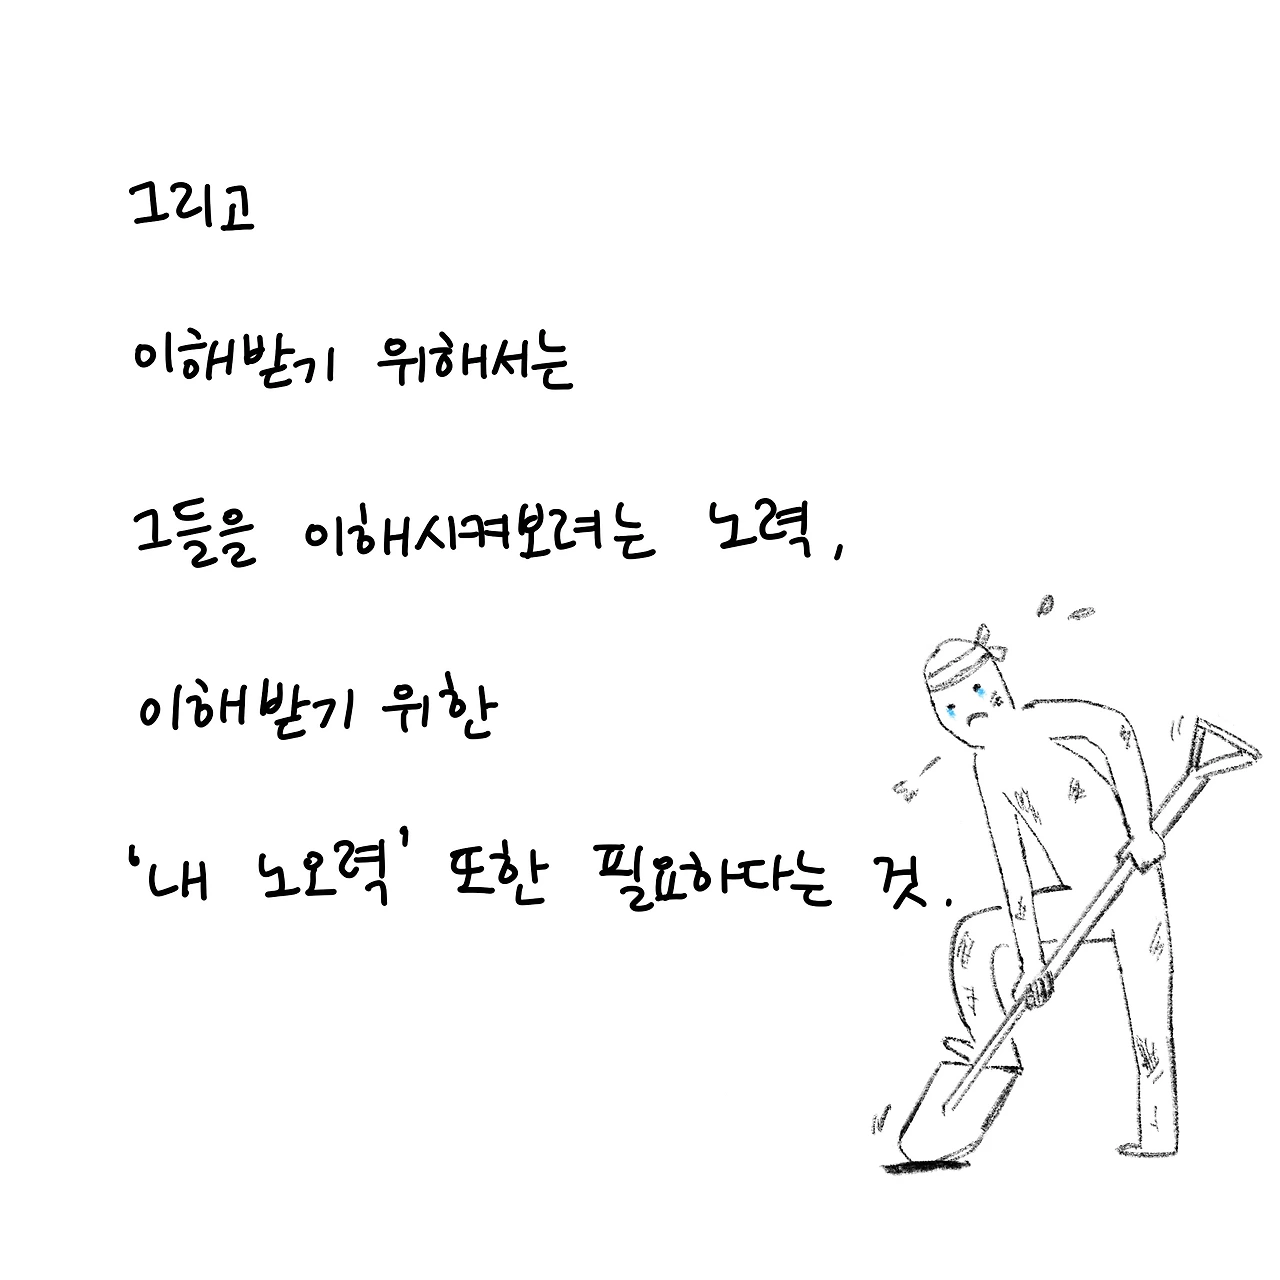 그리고
이해받기 위해서는
그들을 이해시켜보려는 노력,
이해받기 위한
'내 노오력' 또한 필요하다는 것.